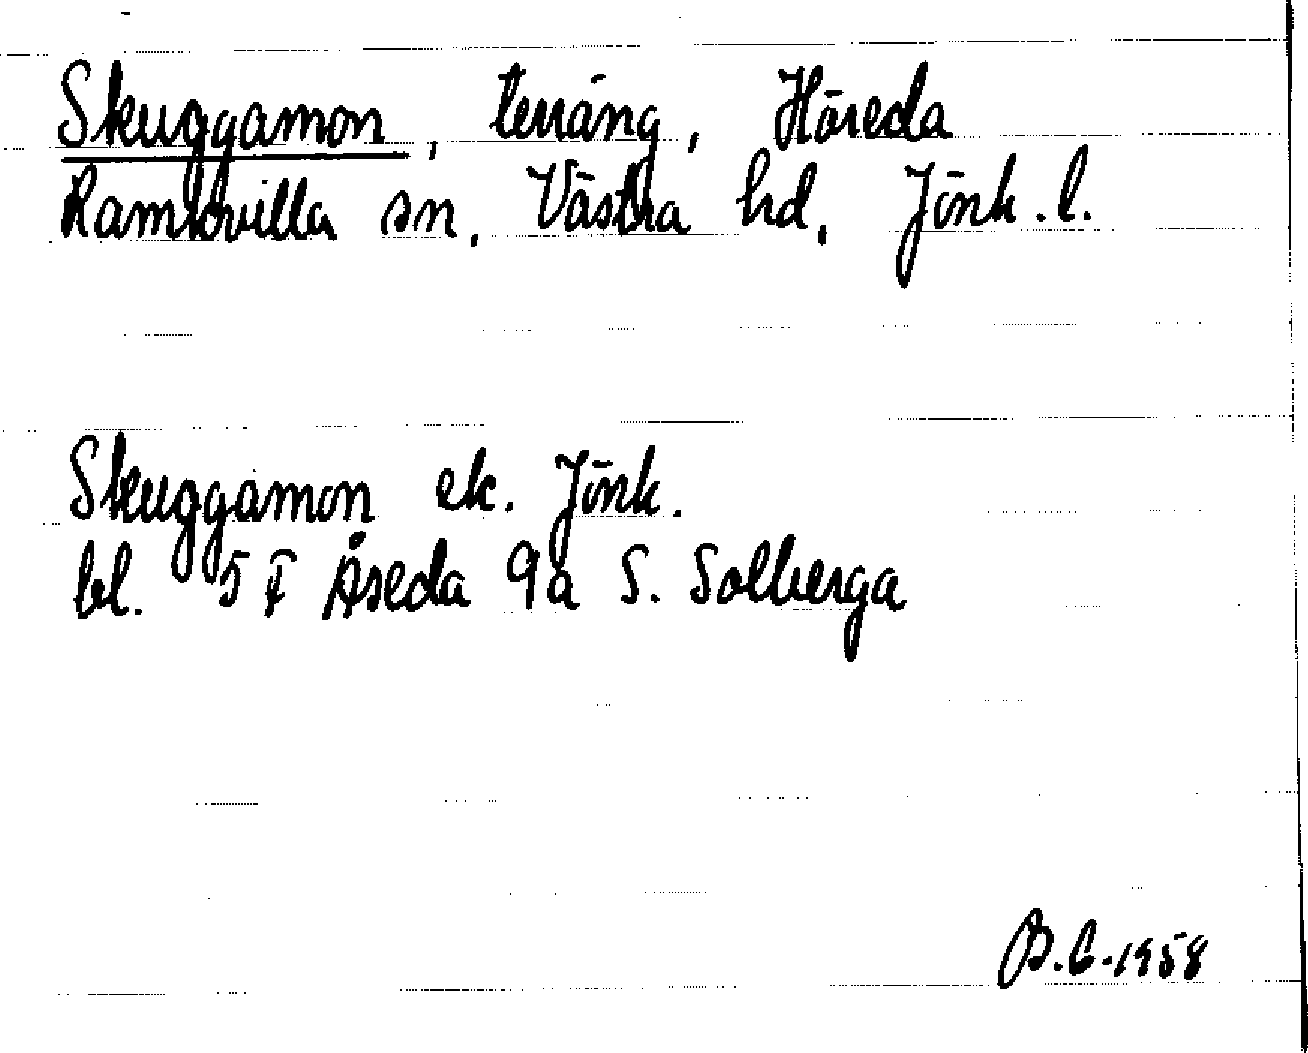 Skuggamon, terräng, Höreda
Ramkvilla sn, Västra hd, Jönk. l.
Skuggamon ek. Jönk.
bl. 5 F Åseda 9a S. Solberga
B.C. 1958